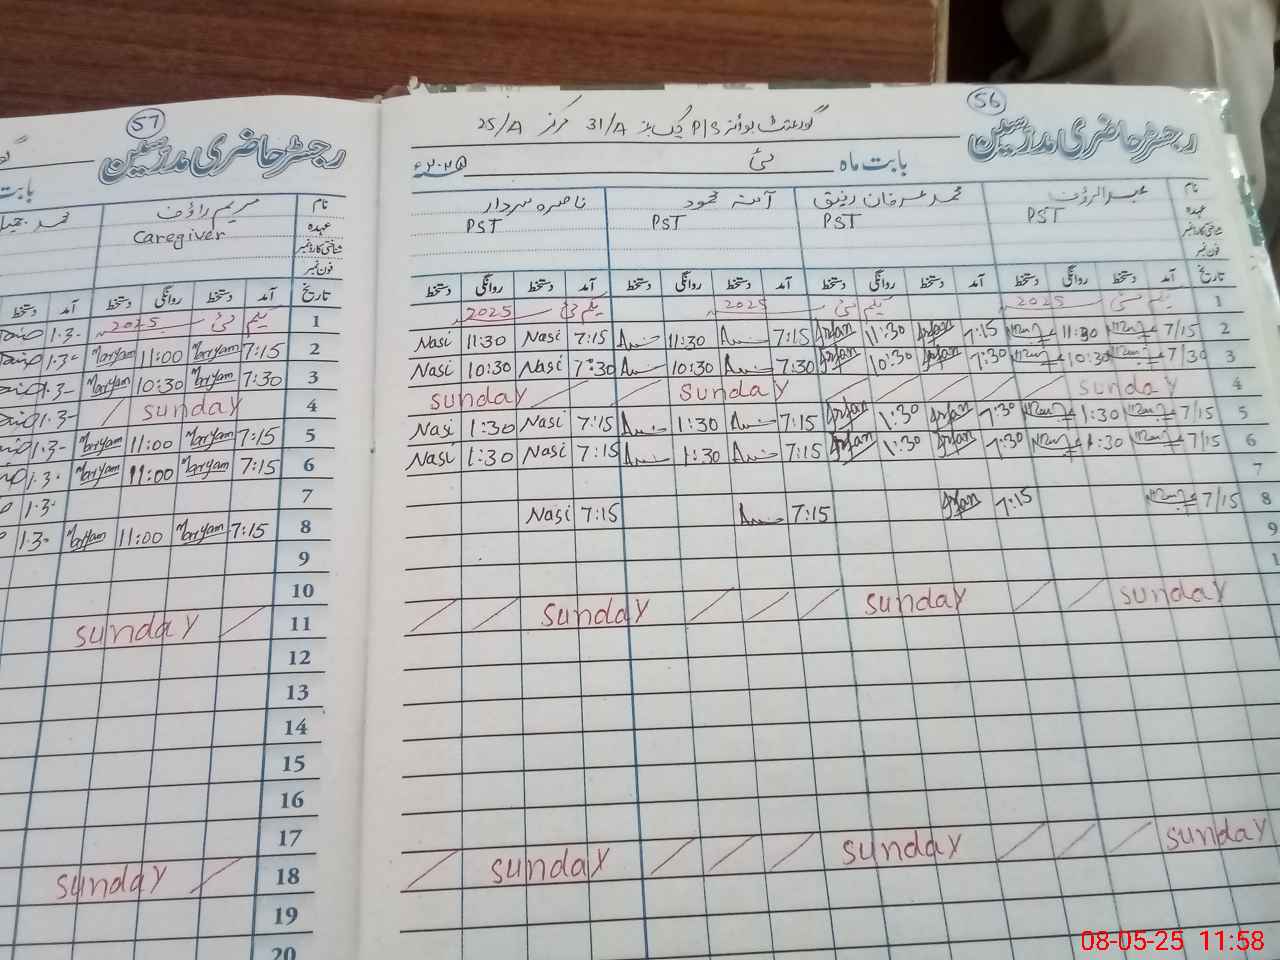 56
رجسٹر حاضری مدرسین
گورنمنٹ بوائز P/S چک نمبر 31/A مرکز 25/A
بابت ماہ مئی ۲۰۲۵ء
نام عبدالرؤف محمد عرفان رفیق آمنہ محمود ناصرہ سردار
عہدہ PST PST PST PST
شناختی کارڈ نمبر
فون نمبر
تاریخ آمد دستخط روانگی دستخط آمد دستخط روانگی دستخط آمد دستخط روانگی دستخط آمد دستخط روانگی دستخط
1 یکم مئی 2025 یکم مئی 2025 یکم مئی 2025
2 7/15 11:30 7:15 Irfan 11:30 Irfan 7:15 11:30 7:15 Nasi 11:30 Nasi
3 7/30 10:30 7:30 Irfan 10:30 Irfan 7:30 10:30 7:30 Nasi 10:30 Nasi
4 sunday sunday sunday
5 7/15 1:30 7:30 Irfan 1:30 Irfan 7:15 1:30 7:15 Nasi 1:30 Nasi
6 7/15 1:30 7:30 Irfan 1:30 Irfan 7:15 1:30 7:15 Nasi 1:30 Nasi
7
8 7/15 7:15 Irfan 7:15 7:15 Nasi
9
1
sunday sunday sunday
sunday sunday sunday
57
رجسٹر حاضری مدرسین
بابت
نام مریم راؤف محمد
عہدہ Caregiver
شناختی کارڈ نمبر
فون نمبر
تاریخ آمد دستخط روانگی دستخط آمد دستخط
1 یکم مئی 2025 1:3-
2 7:15 Maryam 11:00 Maryam 1:3-
3 7:30 Maryam 10:30 Maryam 1:3-
4 sunday 1:3-
5 7:15 Maryam 11:00 Maryam 1:3-
6 7:15 Maryam 11:00 Maryam 1:3-
7 1:3-
8 7:15 Maryam 11:00 Maryam 1:3-
9
10
11 sunday
12
13
14
15
16
17
18 sunday
19
20
08-05-25 11:58